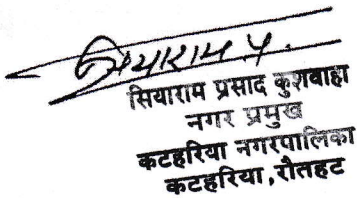 सियाराम प्र.
सियाराम प्रसाद कुशवाहा
नगर प्रमुख
कटहरिया नगरपालिका
कटहरिया, रौतहट